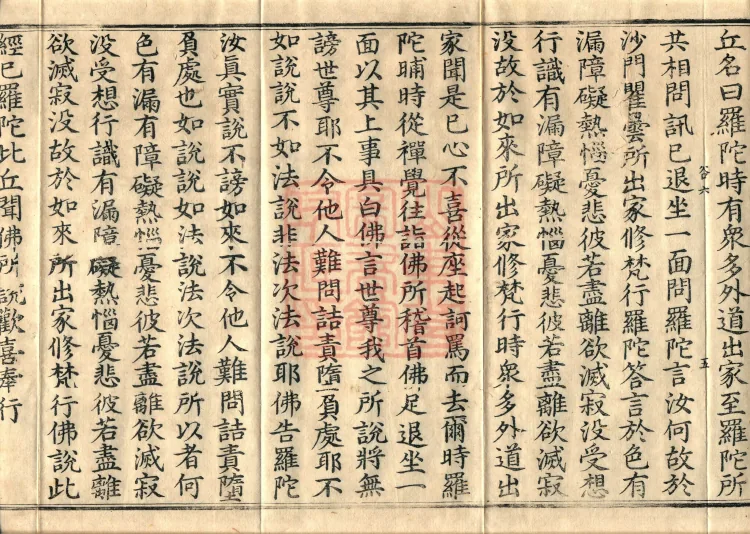 丘名曰羅陀時有衆多外道出家至羅陀所
共相問訊已退坐一面問羅陀言汝何故於
沙門瞿曇所出家修梵行羅陀荅言於色有
漏障礙熱惱憂悲彼若盡離欲滅寂没受想
行識有漏障礙熱惱憂悲彼若盡離欲滅寂
没故於如來所出家修梵行時衆多外道出
家聞是已心不喜從座起訶罵而去爾時羅
陀晡時從禪覺往詣佛所稽首佛足退坐一
面以其上事具白佛言世尊我之所說將無
謗世尊耶不令他人難問詰責墮負處耶不
如說說不如法說非法次法說耶佛告羅陀
汝真實說不謗如來不令他人難問詰責墮
負處也如說說如法說法次法說所以者何
色有漏有障礙熱惱憂悲彼若盡離欲滅寂
没受想行識有漏障礙熱惱憂悲彼若盡離
欲滅寂没故於如來所出家修梵行佛說此
經已羅陀比丘聞佛所說歡喜奉行
五